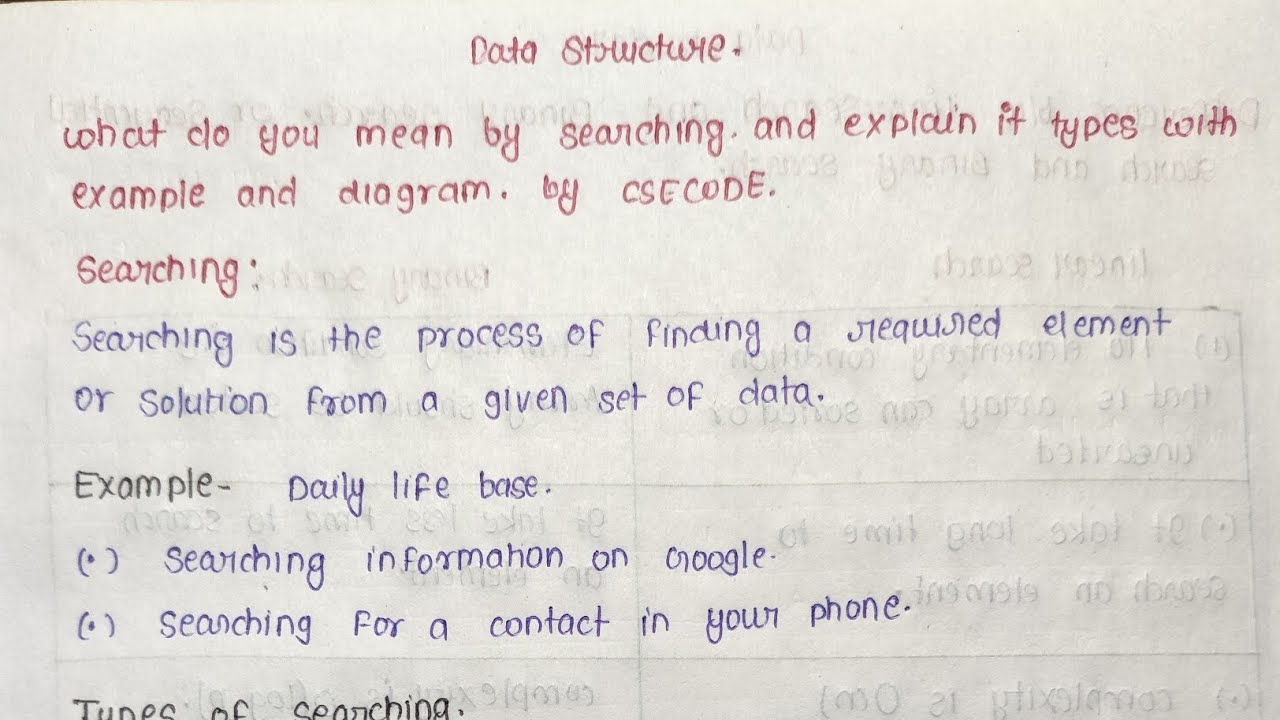 Data Structure.
what do you mean by searching. and explain it types with
example and diagram. by CSECODE.
Searching:
Searching is the process of finding a required element
or solution from a given set of data.
Example- Daily life base.
(•) Searching information on Google.
(•) Searching for a contact in your phone.
Types of Searching.